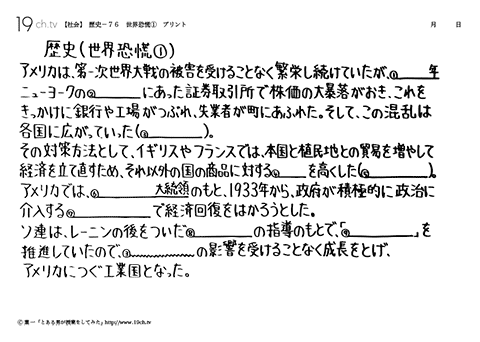 19ch.tv 【社会】 歴史－７６ 世界恐慌① プリント 月 日
歴史(世界恐慌①)
アメリカは、第一次世界大戦の被害を受けることなく繁栄し続けていたが、@______年
ニューヨークの@______にあった証券取引所で株価の大暴落がおき、これを
きっかけに銀行や工場がつぶれ、失業者が町にあふれた。そして、この混乱は
各国に広がっていった(@______)。
その対策方法として、イギリスやフランスでは、本国と植民地との貿易を増やして
経済を立て直すため、それ以外の国の商品に対する@______を高くした(@______)。
アメリカでは、@______大統領のもと、1933年から、政府が積極的に政治に
介入する@______で経済回復をはかろうとした。
ソ連は、レーニンの後をついだ@______の指導のもとで、「@______」を
推進していたので、@______の影響を受けることなく成長をとげ、
アメリカにつぐ工業国となった。
© 葉一「とある男が授業をしてみた」http://www.19ch.tv